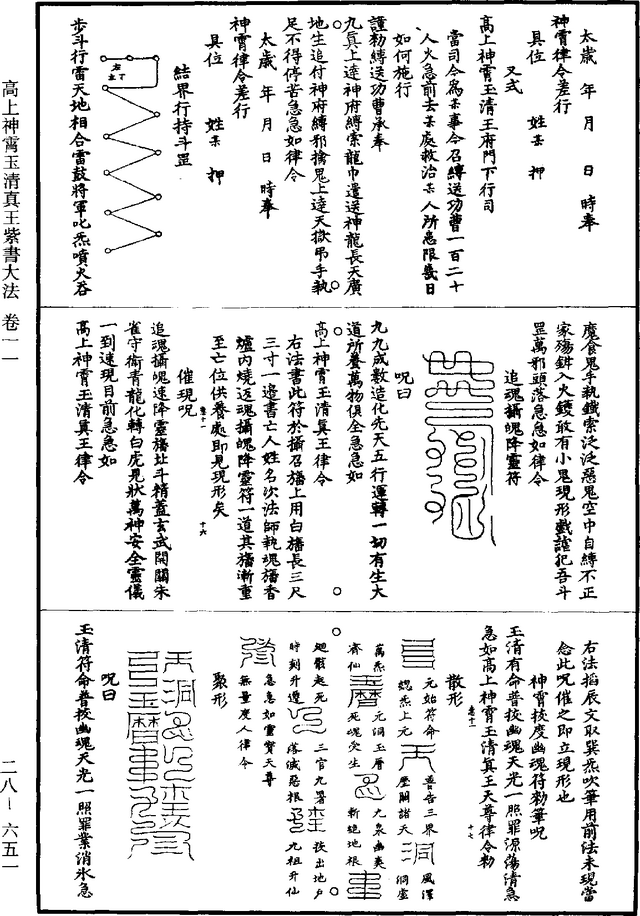 太歲 年 月 日 時奉
神霄律令差行
具位 姓某 押
又式
高上神霄玉清王府門下行司
當司今為某事今召縛送功曹一百二十
人火急前去某處救治某人所患限幾日
如何施行
謹勑縛送功曹承奉
九真上達神府縛索龍巾遣送神龍長天廣
地生追付神府縛邪擒鬼上達天獄吊手執
足不得停苦急急如律令
太歲 年 月 日 時奉
神霄律令差行
具位 姓某 押
結界行持斗罡
步斗行雷天地相合雷鼓將軍叱炁噴火吞
魔食鬼手執鐵索泛泛惡鬼空中自縛不正
家殤鉡入火鑊敢有小鬼現形戲謔犯吾斗
罡萬邪頭落急急如律令
追魂攝魄降靈符
呪曰
九九成數造化先天五行運轉一切有生大
道所養萬物俱全急急如
高上神霄玉清真王律令
右法書此符於攝召旛上用白旛長三尺
三寸一邊書亡人姓名次法師執魂旛香
爐內燒返魂攝魄降靈符一道其旛漸重
至亡位供養處即見現形矣
卷十一 十六
催現呪
追魂攝魄速降靈旛北斗精蓋玄武開關朱
雀守衛青龍化轉白虎見狀萬神安全靈儀
一到速現目前急急如
高上神霄玉清真王律令
右法搯辰文取巽炁吹筆用前法未現當
念此呪催之即立現形也
神霄拔度幽魂符勑筆呪
玉清有命普拔幽魂天光一照罪源蕩清急
急如高上神霄玉清真王天尊律令勑
卷十一 十七
散形
元始符命 普告三界 風澤
萬炁 總炁上元 歷關諸天 洞虛
齊仙 元洞玉曆 九泉幽爽
死魂受生 斬絕地根
廻骸起死 三官九署 拔出地戶
時刻升遷 落滅惡根 九祖升仙
急急如靈寶天尊
無量度人律令
聚形
呪曰
玉清符命普拔幽魂天光一照罪業消氷急
高上神霄玉清真王紫書大法 卷一一
二八-六五一